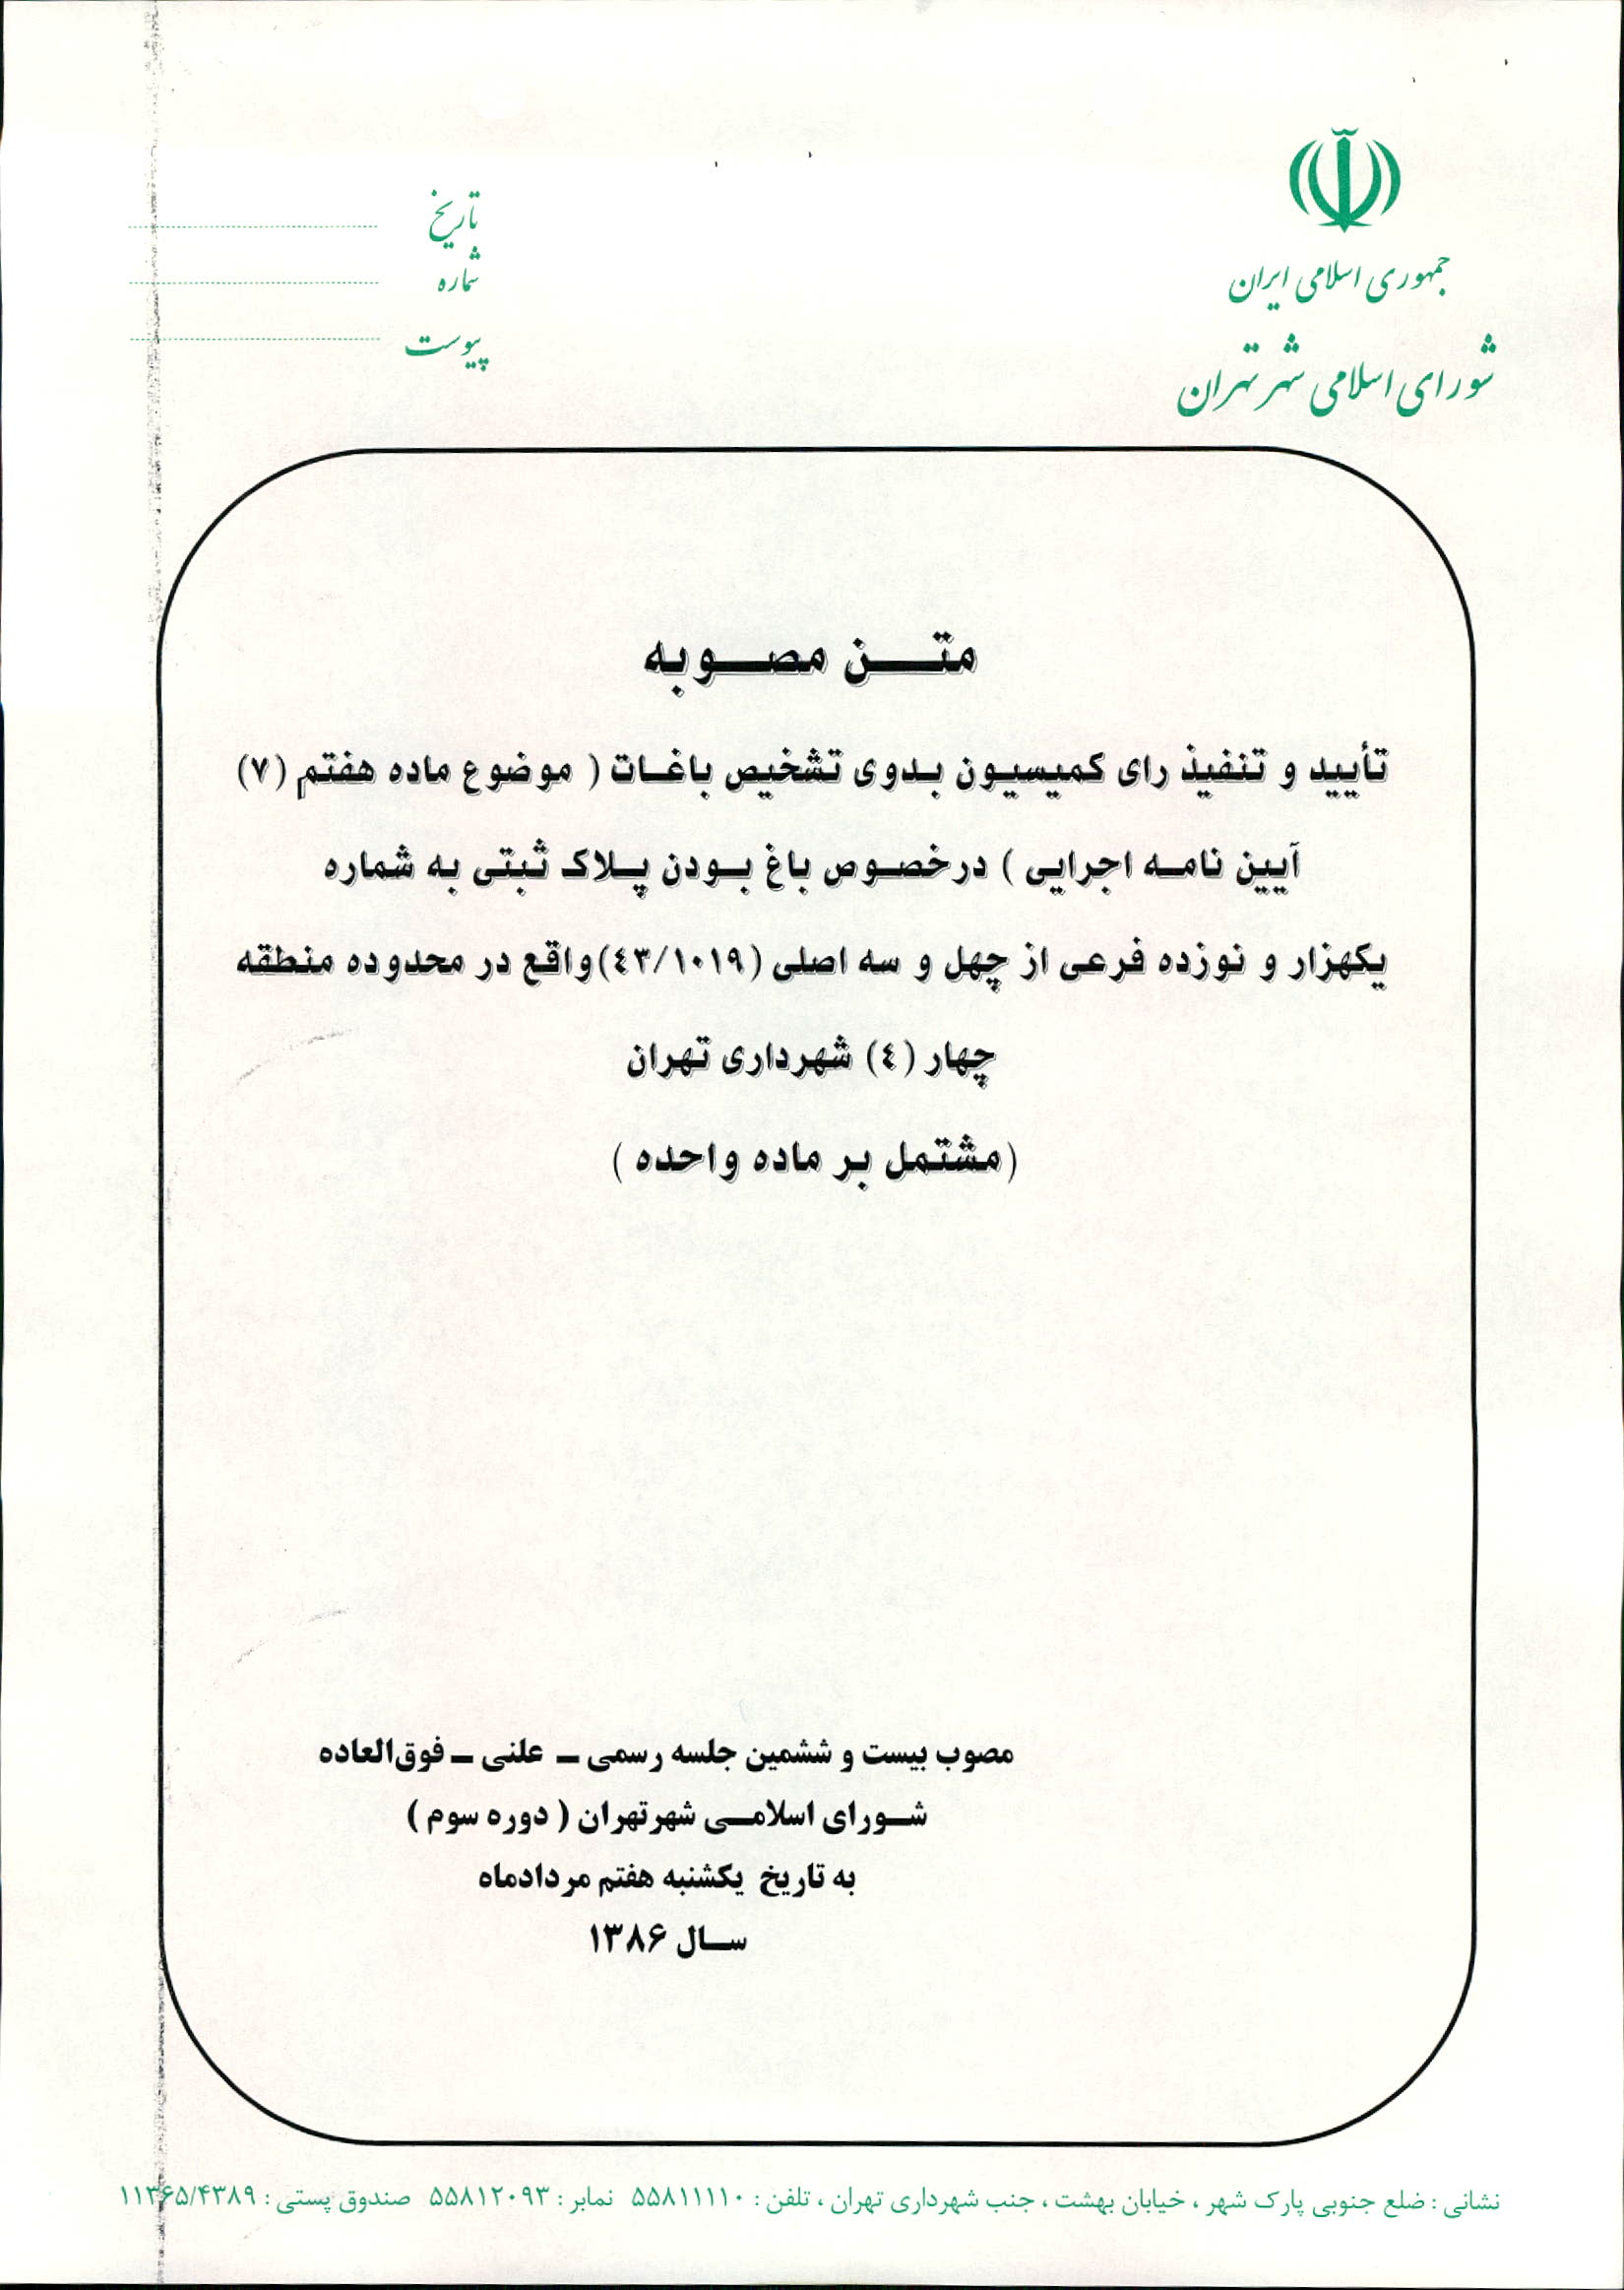 جمهوری اسلامی ایران
شورای اسلامی شهر تهران
تاریخ
شماره
پیوست
متن مصوبه
تأیید و تنفیذ رای کمیسیون بدوی تشخیص باغات ( موضوع ماده هفتم (۷)
آیین نامه اجرایی ) درخصوص باغ بودن پلاک ثبتی به شماره
یکهزار و نوزده فرعی از چهل و سه اصلی (۴۳/۱۰۱۹) واقع در محدوده منطقه
چهار (۴) شهرداری تهران
(مشتمل بر ماده واحده )
مصوب بیست و ششمین جلسه رسمی – علنی – فوق‌العاده
شورای اسلامی شهرتهران ( دوره سوم )
به تاریخ یکشنبه هفتم مردادماه
سال ۱۳۸۶
نشانی : ضلع جنوبی پارک شهر ، خیابان بهشت ، جنب شهرداری تهران ، تلفن : ۵۵۸۱۱۱۱۰ نمابر : ۵۵۸۱۲۰۹۳ صندوق پستی : ۱۱۳۶۵/۴۳۸۹